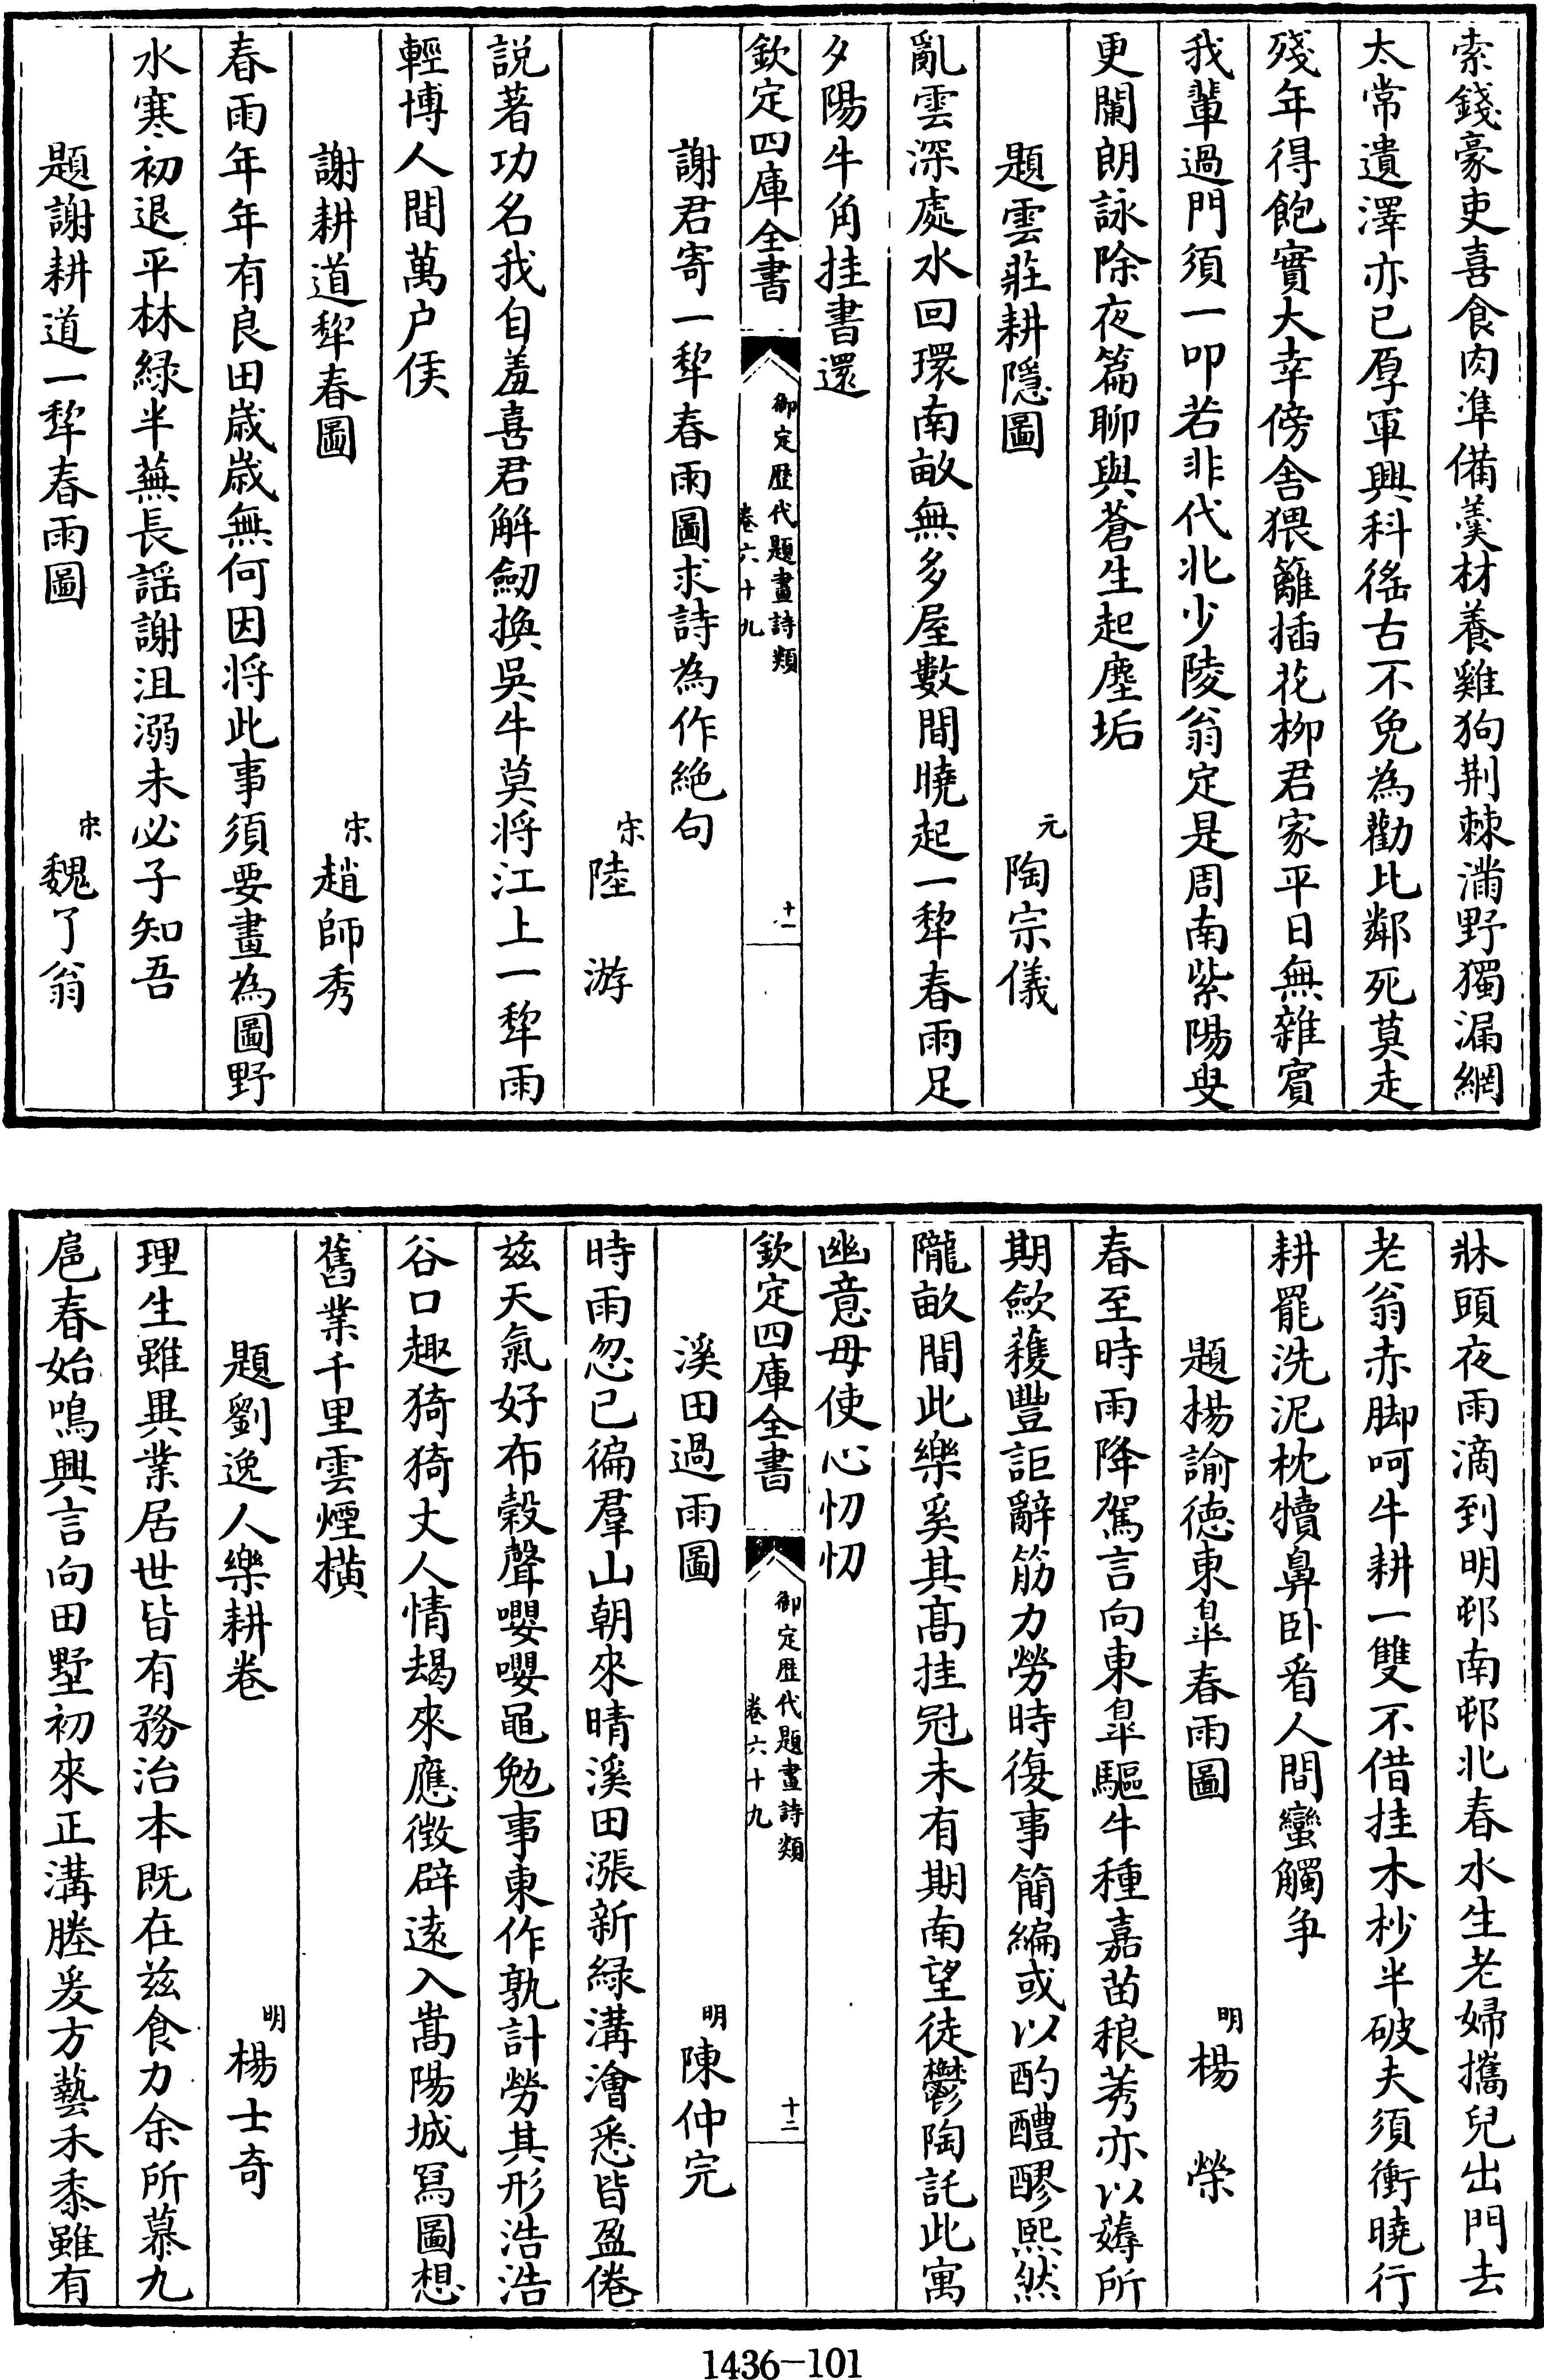 索錢豪吏喜食肉準備羹材養雞狗荆棘滿野獨漏網
太常遺澤亦已厚軍興科徭古不免為勸比鄰死莫走
殘年得飽實大幸傍舍猥籬插花柳君家平日無雜賓
我輩過門須一叩若非代北少陵翁定是周南紫陽叟
更闌朗詠除夜篇聊與蒼生起塵垢
題雲莊耕隱圖 元 陶宗儀
亂雲深處水回環南畝無多屋數間曉起一犂春雨足
夕陽牛角挂書還
欽定四庫全書 御定歴代題畫詩類 卷六十九 十一
謝君寄一犂春雨圖求詩為作絶句
宋 陸游
説著功名我自羞喜君解劒換吳牛莫將江上一犂雨
輕博人間萬户侯
謝耕道犂春圖 宋 趙師秀
春雨年年有良田歳歳無何因將此事須要畫為圖野
水寒初退平林緑半蕪長謡謝沮溺未必子知吾
題謝耕道一犂春雨圖 宋 魏了翁
牀頭夜雨滴到明邨南邨北春水生老婦攜兒出門去
老翁赤脚呵牛耕一雙不借挂木杪半破夫須衝曉行
耕罷洗泥枕犢鼻卧看人間蠻觸争
題楊諭徳東臯春雨圖 明 楊榮
春至時雨降駕言向東臯驅牛種嘉苗稂莠亦以薅所
期歛穫豐詎辭筋力勞時復事簡編或以酌醴醪熙然
隴畝間此樂奚其髙挂冠未有期南望徒鬱陶託此寓
幽意毋使心忉忉
欽定四庫全書 御定歴代題畫詩類 卷六十九 十二
溪田過雨圖 明 陳仲完
時雨忽已徧羣山朝來晴溪田漲新緑溝澮悉皆盈倦
兹天氣好布榖聲嚶嚶黽勉事東作孰計勞其形浩浩
谷口趣猗猗丈人情朅來應徴辟逺入嵩陽城冩圖想
舊業千里雲煙横
題劉逸人樂耕卷 明 楊士奇
理生雖異業居世皆有務治本既在兹食力余所慕九
扈春始鳴興言向田墅初來正溝塍爰方藝禾黍雖有
1436-101